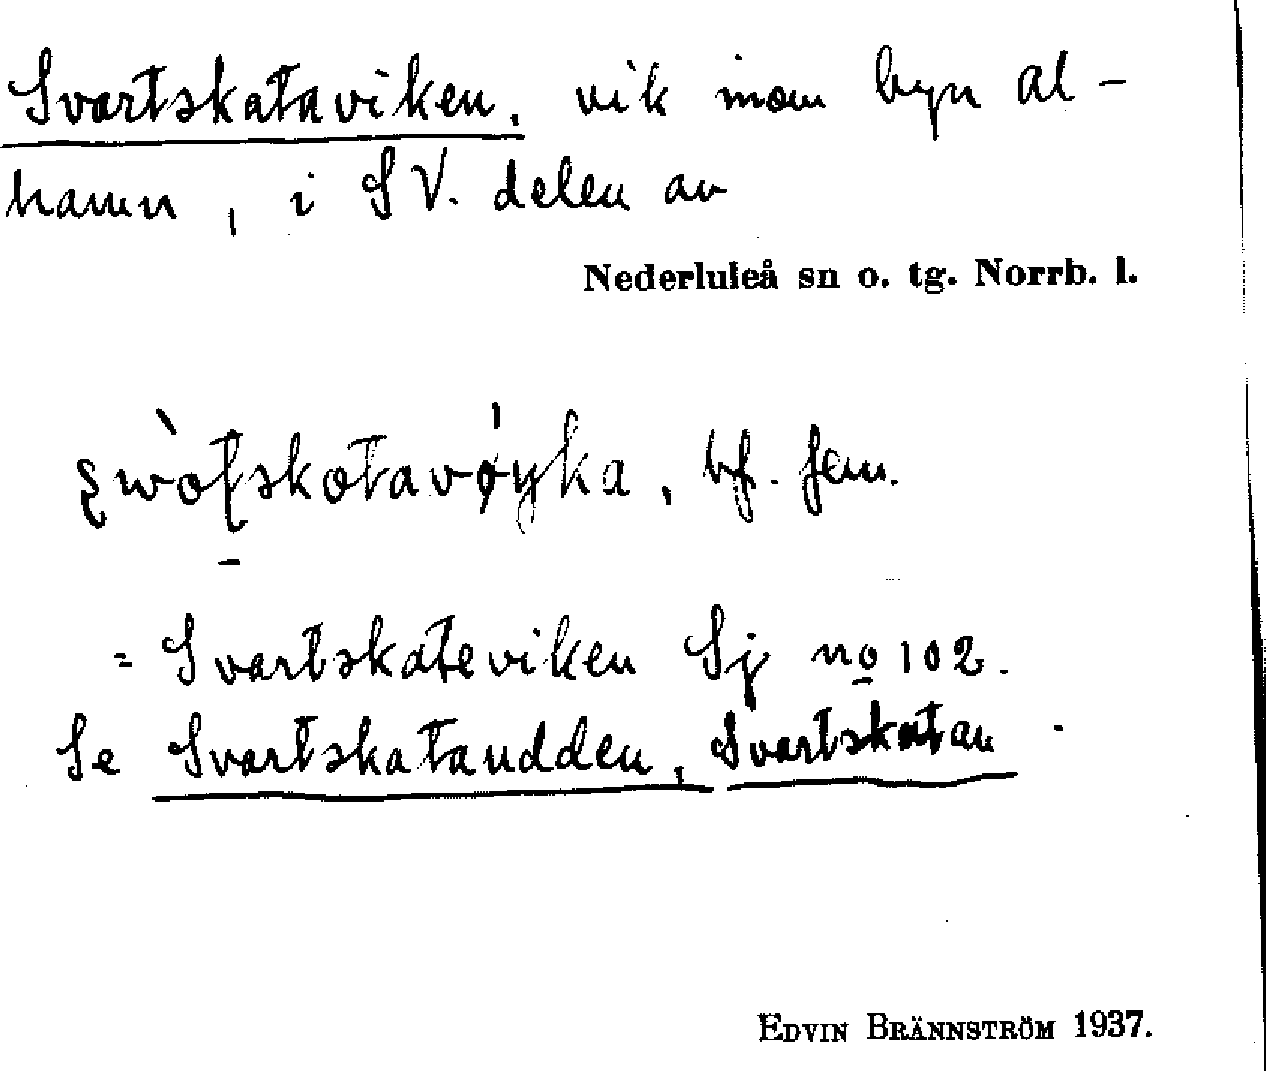 Svartskataviken, vik inom byn Al-
hamn, i SV. delen av
Nederluleå sn o. tg. Norrb. l.
bf. fem.
= Svartskateviken Sj no 102.
Se Svartskataudden, Svartskatan.
EDVIN BRÄNNSTRÖM 1937.